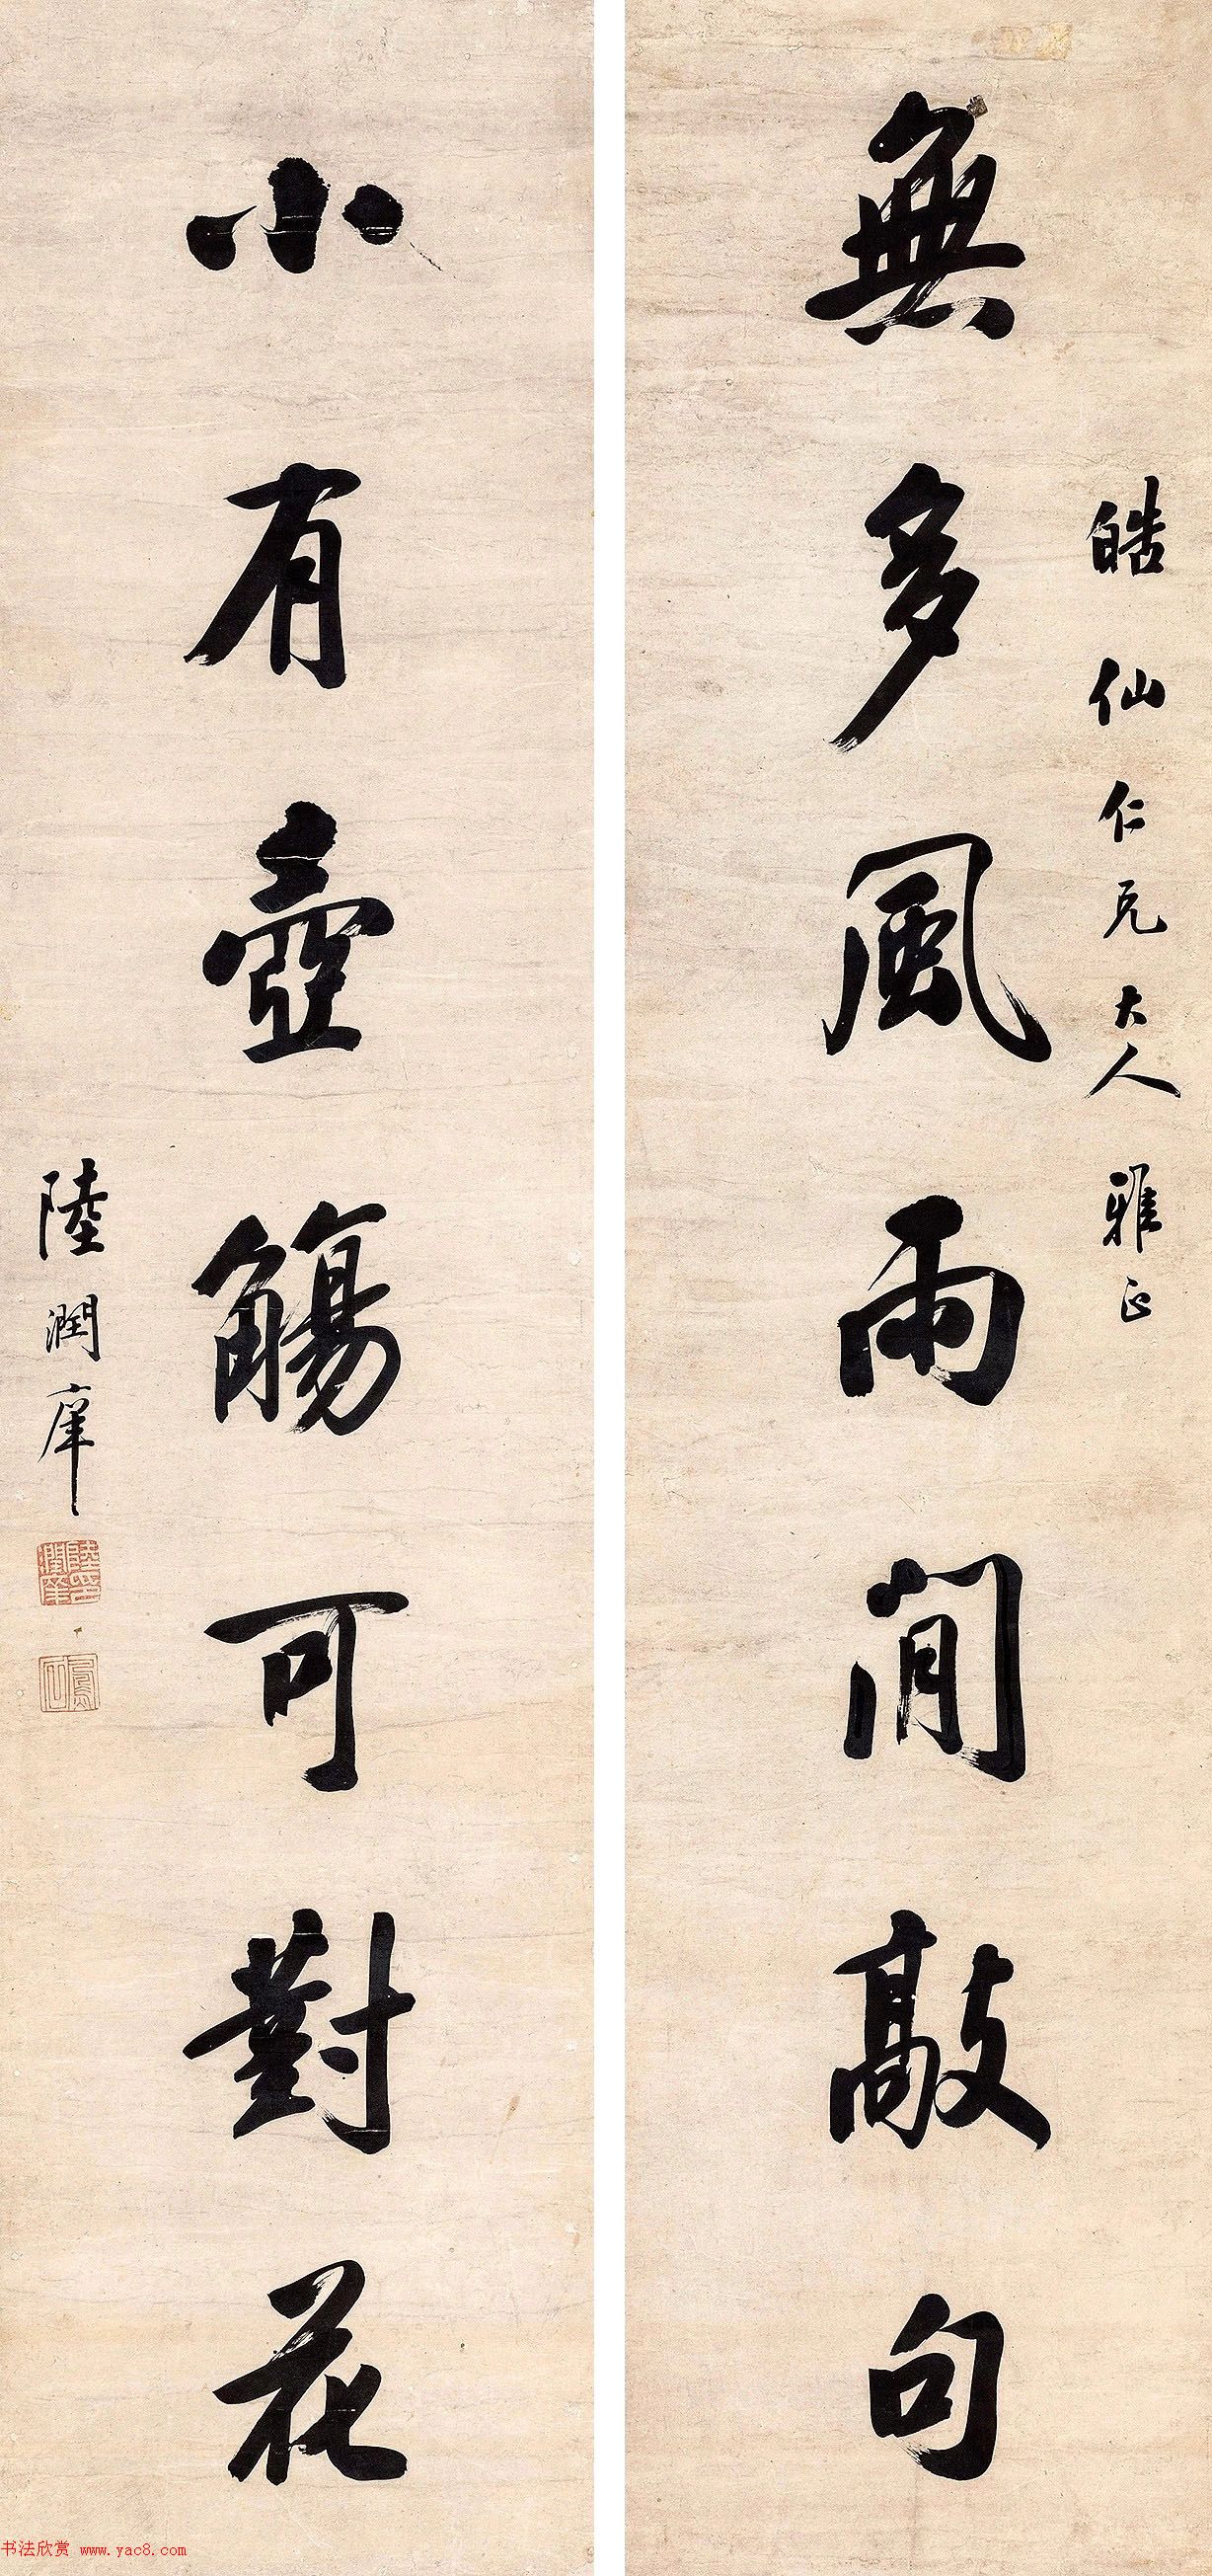 皓仙仁兄大人雅正
無多風雨閒敲句
小有壺觴可對花
陸潤庠
書法欣赏 www.yac8.com